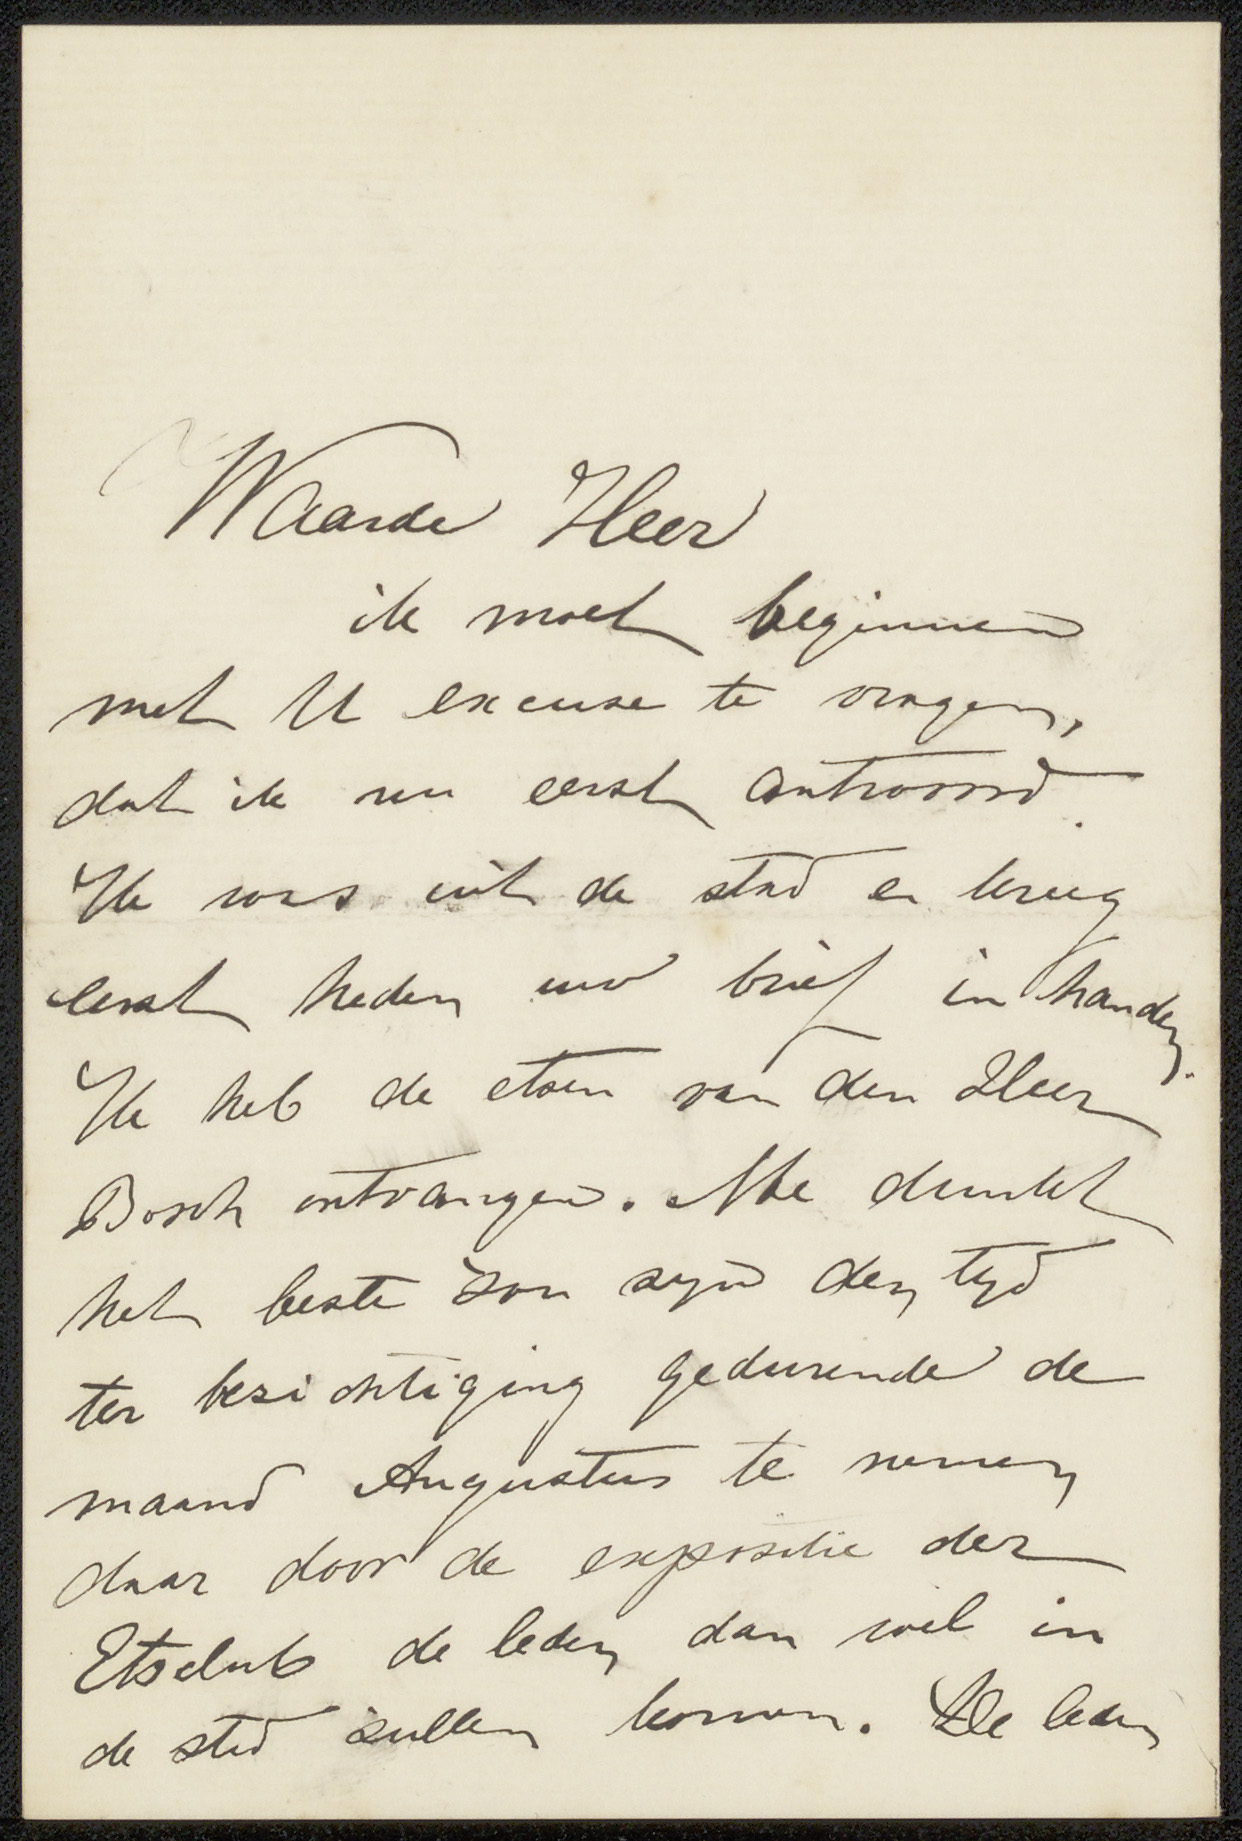 Waarde Heer
ik moet beginnen
met U excuse te vragen,
dat ik nu eerst antwoord.
Ik was uit de stad en kreeg
eerst heden uw brief in handen.
Ik heb de etsen van den Heer
Bosch ontvangen. Me dunkt
het beste zou zijn den tijd
ter bezichtiging gedurende de
maand Augustus te nemen
daar door de expositie der
Etsclub de leden dan wel in
de stad zullen komen. De leden